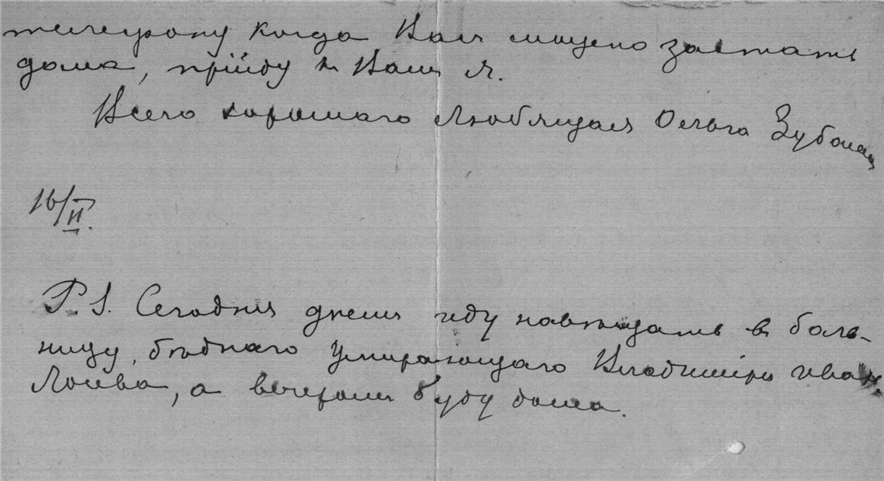 телефону когда Вам можно застать
дома, прійду к Вам я.
Всего хорошаго Любящая Ольга
16/II.
P.S. Сегодня днем иду навещать в боль-
ницу, бѣднаго умирающаго Владиміра Иван.
а вечером буду дома.